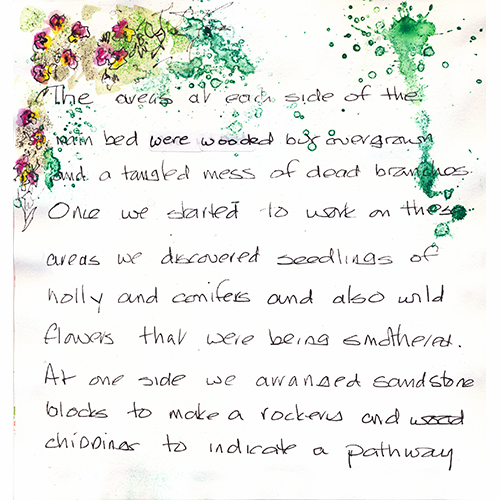 The areas at each side of the
main bed were wooded but overgrown
and a tangled mess of dead branches.
Once we started to work on these
areas we discovered seedlings of
holly and conifers and also wild
flowers that were being smothered.
At one side we arranged sandstone
blocks to make a rockery and
chippings to indicate a pathway